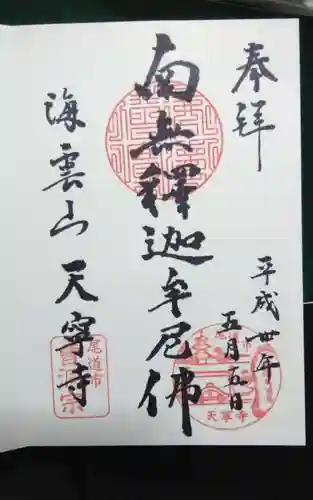 奉拝
平成卅年
五月五日
南無釋迦牟尼佛
海雲山
天寧寺
尾道市
曹洞宗
尾道
天寧寺